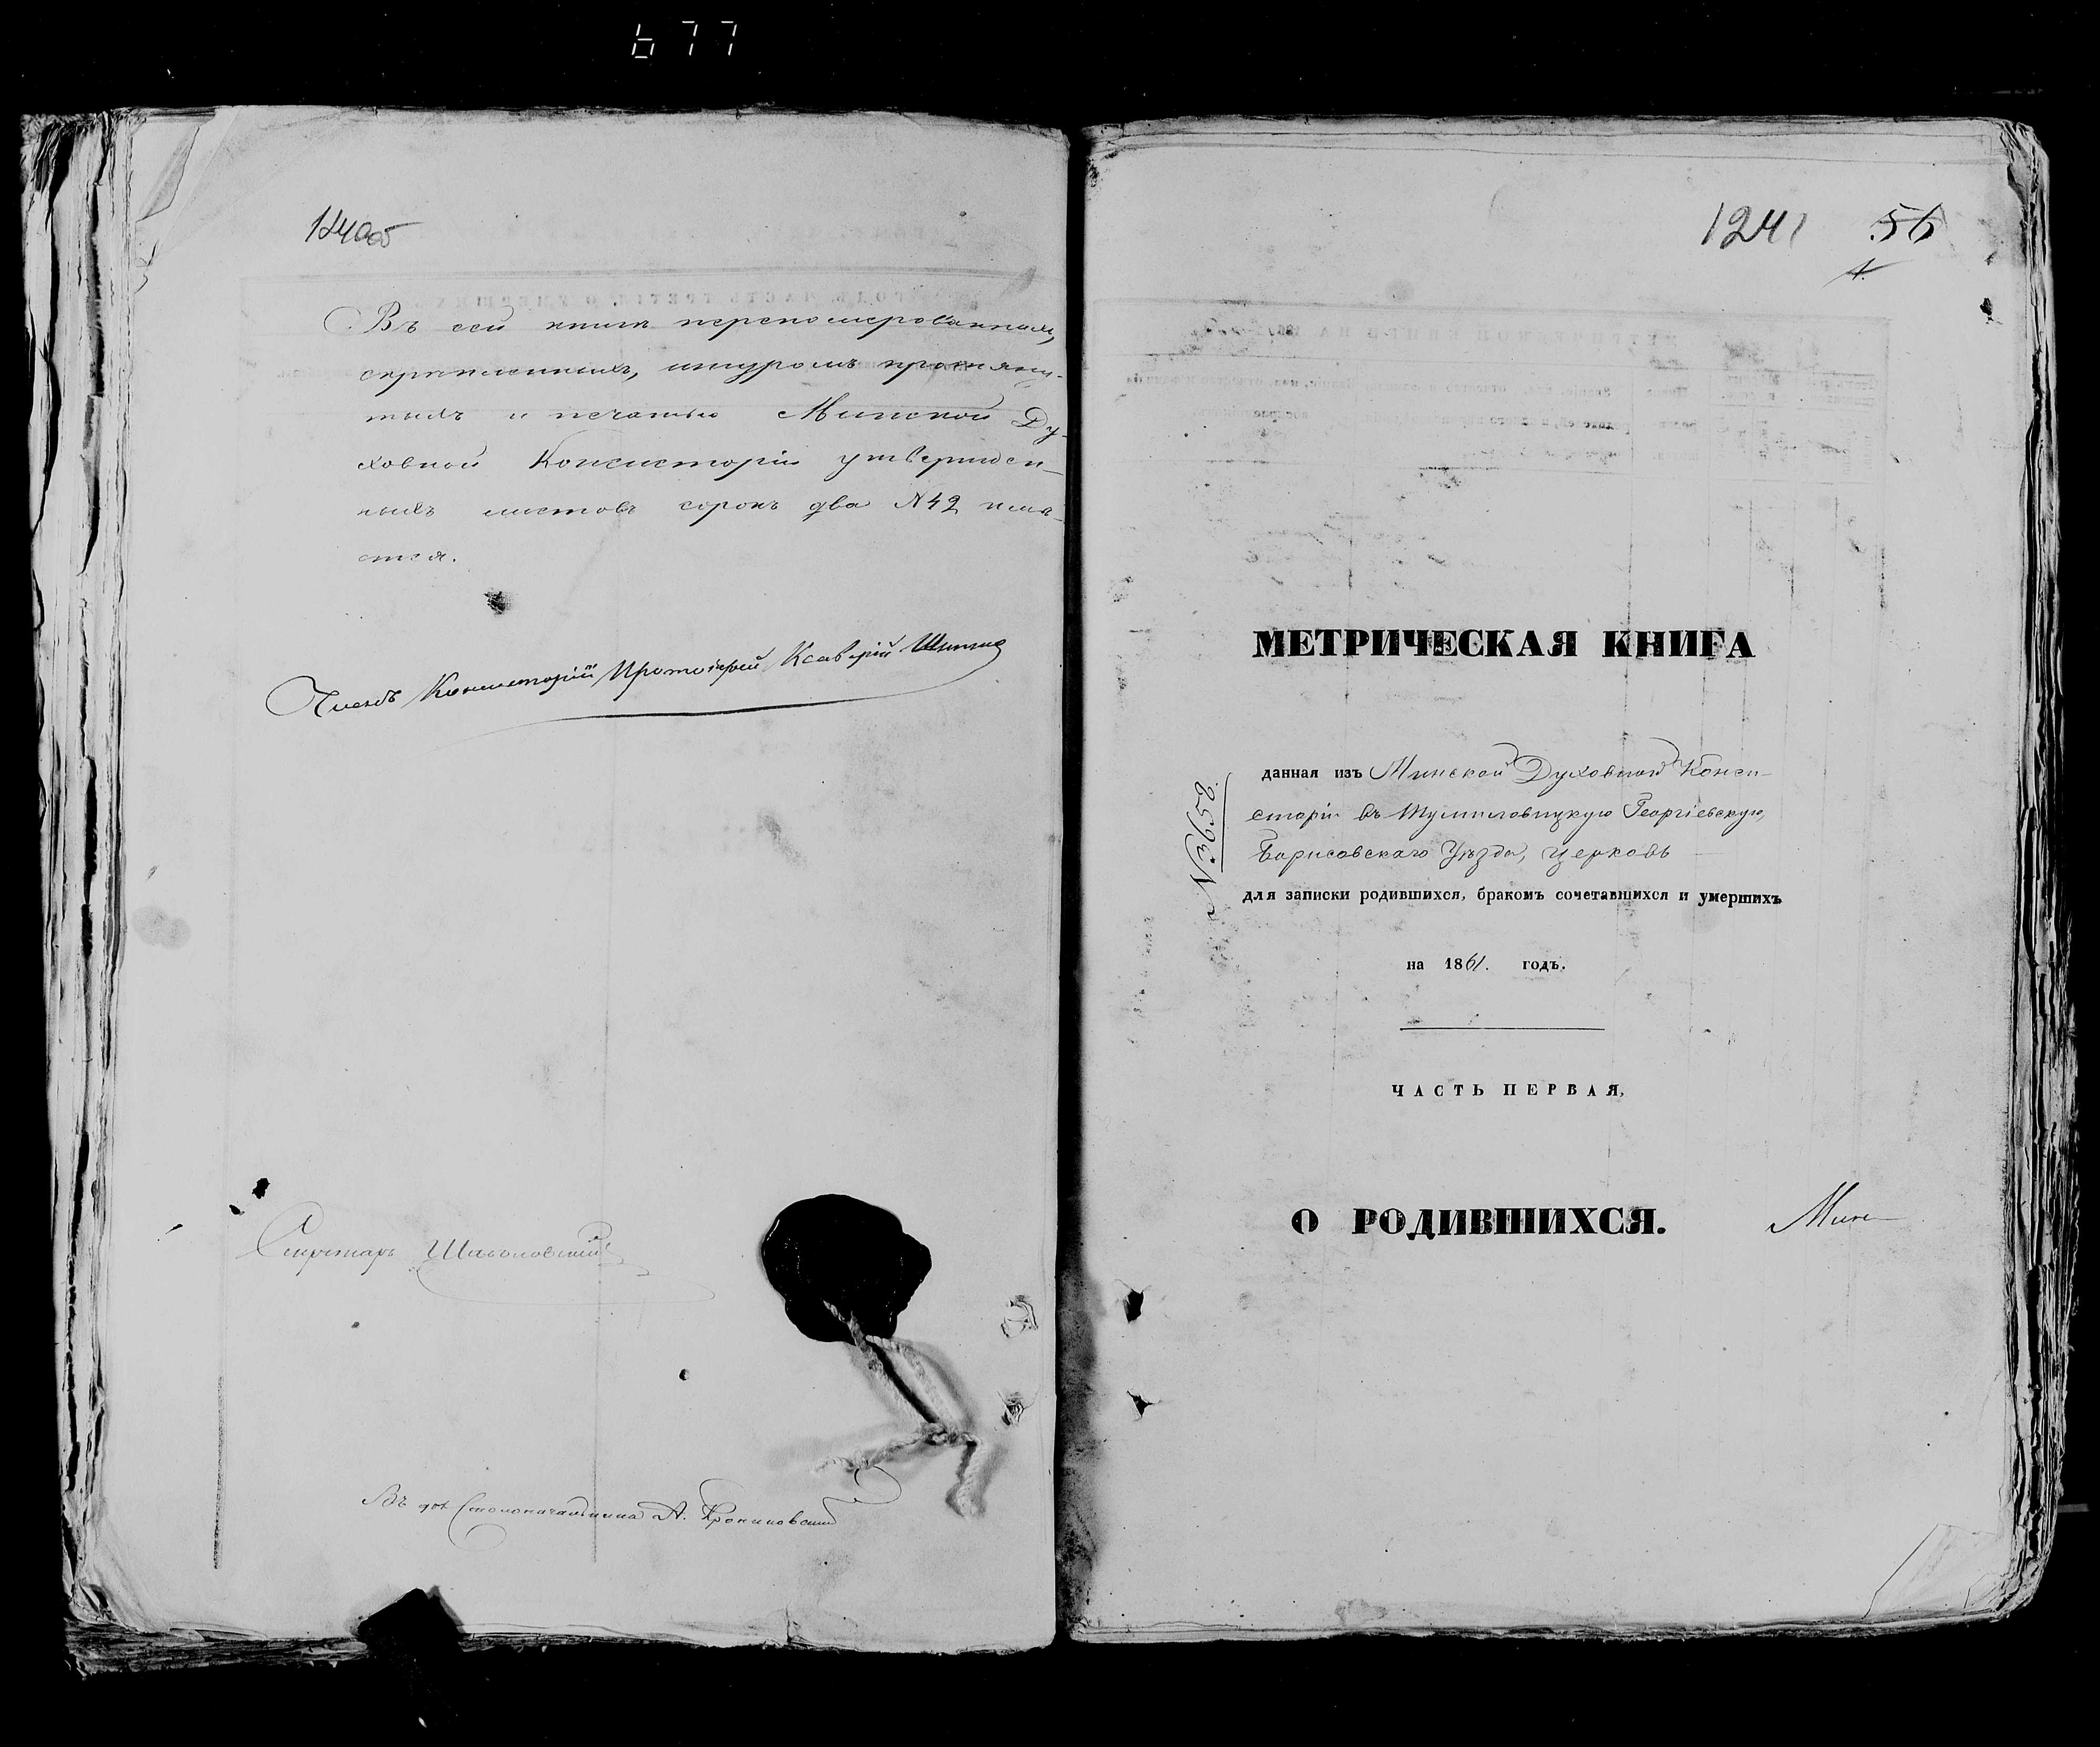 677
Въ сей книгѣ перенумерованныхъ,
скрѣпленныхъ, шнуромъ протяну-
тыхъ и печатью Минской Ду-
ховной Консисторіи утвержден-
ныхъ листовъ сорокъ два №42 имѣ-
ется.
Членъ Консисторіи Протоіерей Ксаверій
Секретарь
Въ дол. Столоначальника А.
1241 56
1.
МЕТРИЧЕСКАЯ КНИГА
№3652.
данная изъ Минской Духовной Конси-
сторіи въ Шумиловицкую Георгіевскую,
Борисовскаго Уѣзда, церковь
для записки родившихся, бракомъ сочетавшихся и умершихъ
на 1861. годъ.
ЧАСТЬ ПЕРВАЯ,
О РОДИВШИХСЯ.
Мин